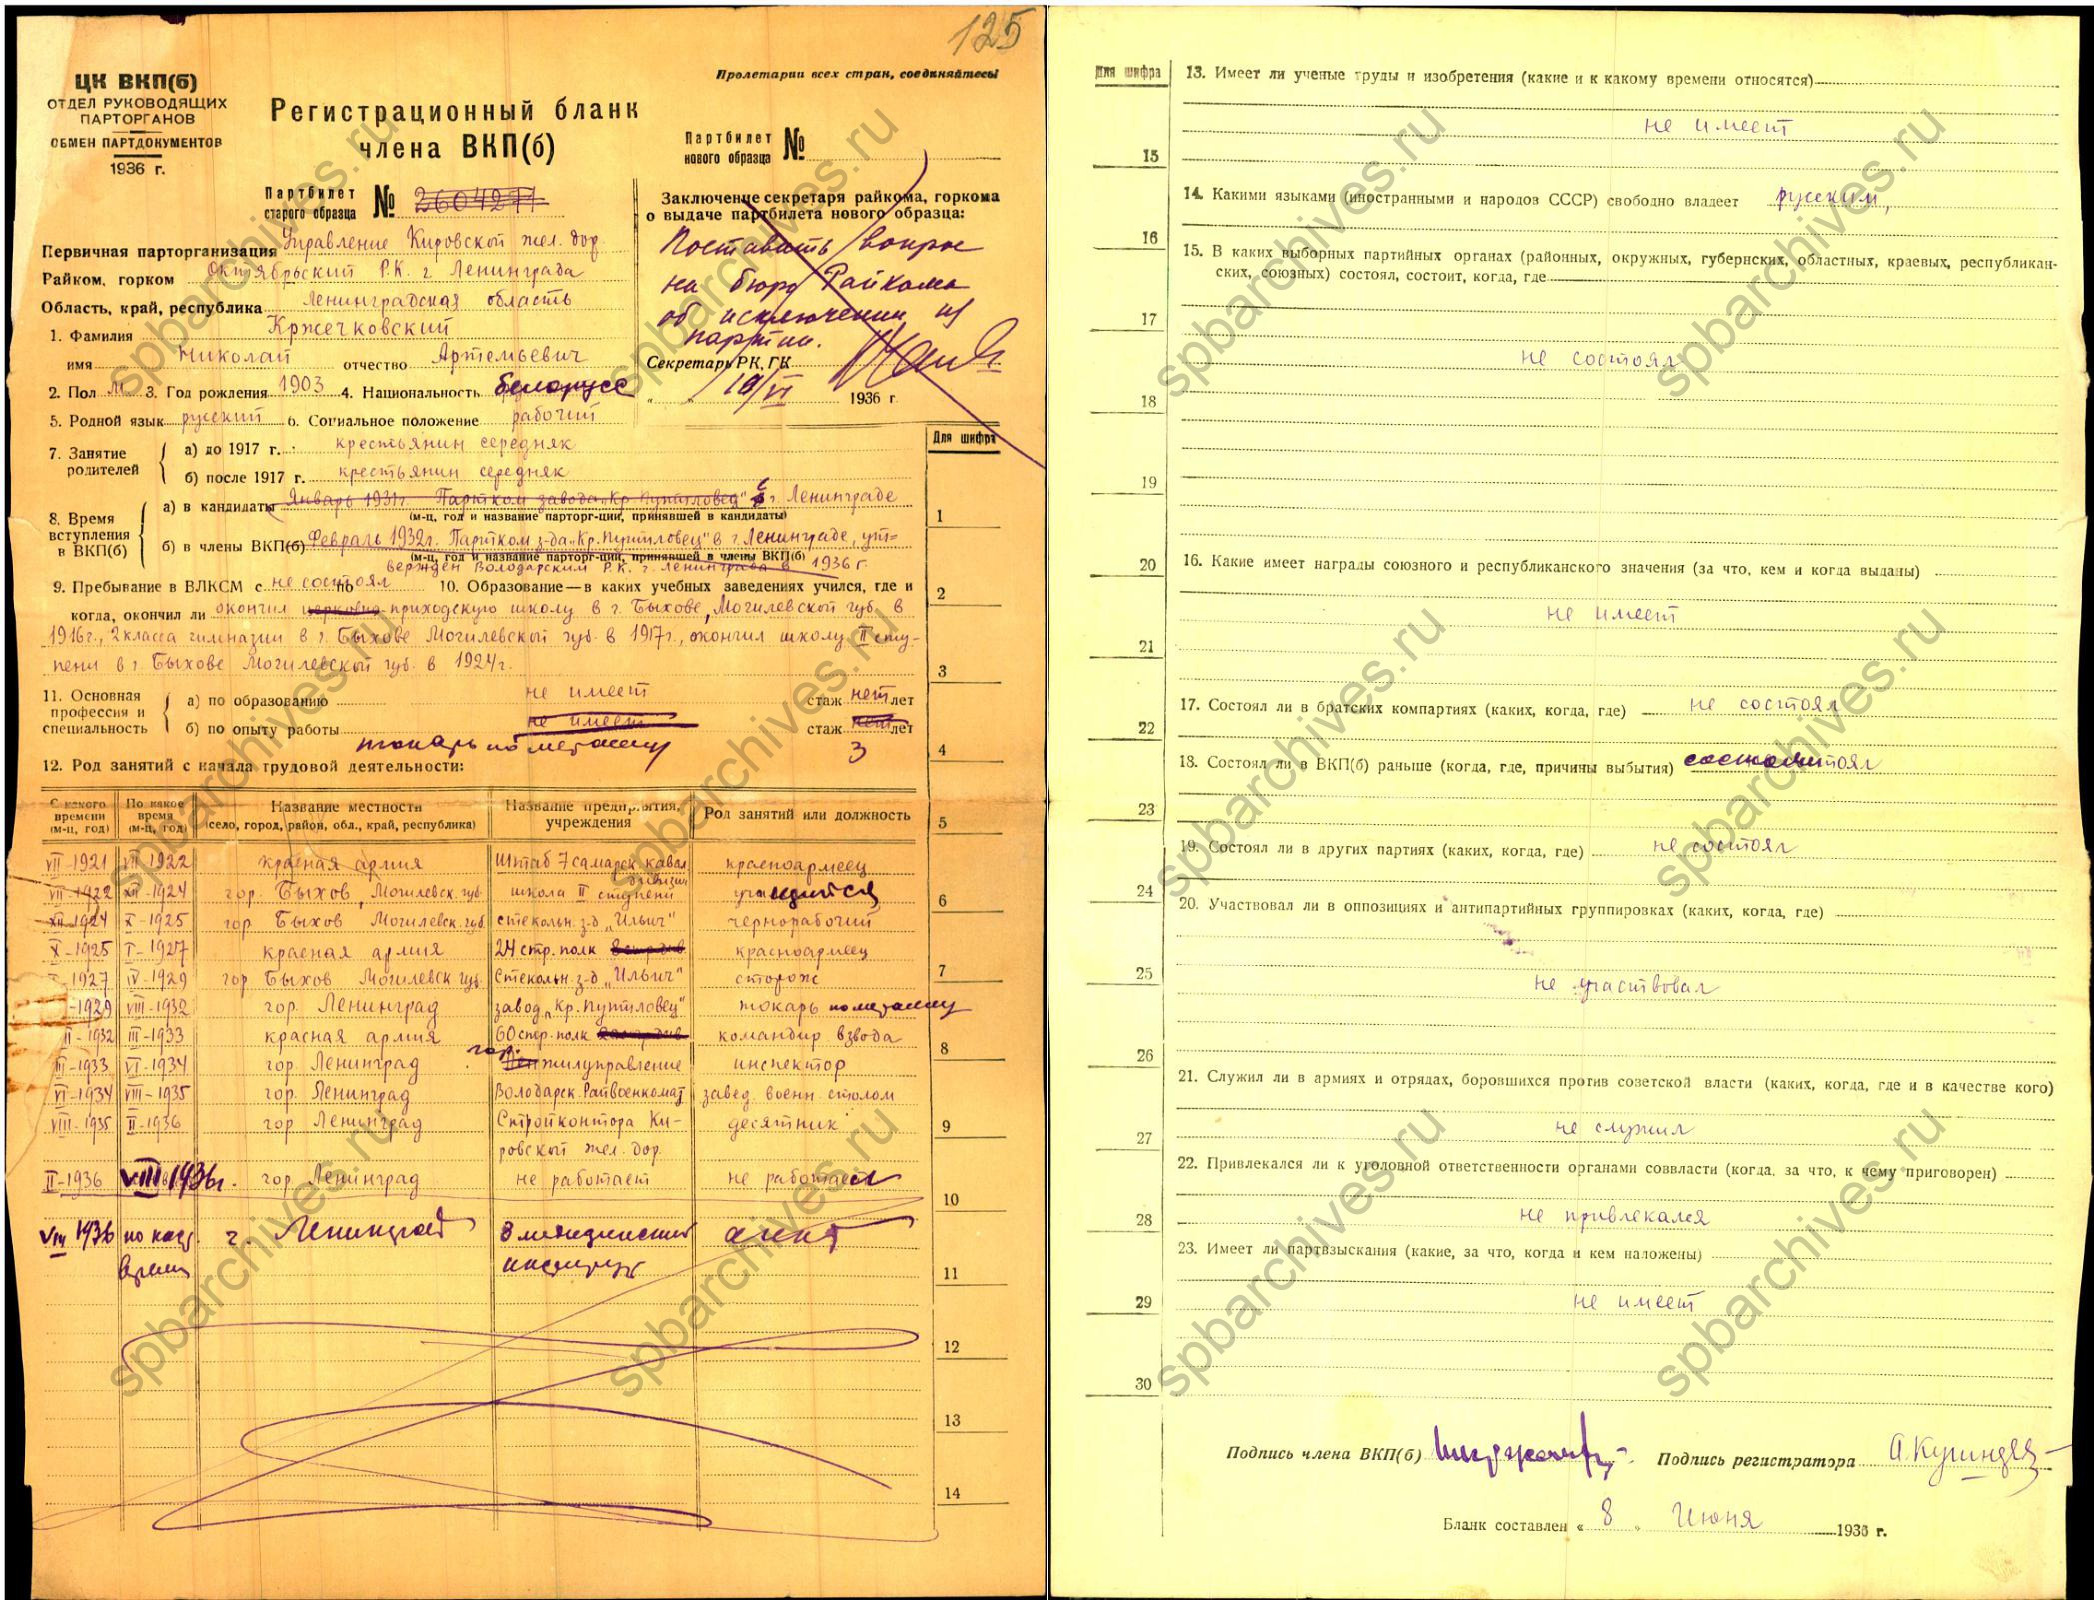 125
Пролетарии всех стран, соединяйтесь!
ЦК ВКП(б)
ОТДЕЛ РУКОВОДЯЩИХ
ПАРТОРГАНОВ
ОБМЕН ПАРТДОКУМЕНТОВ
1936 г.
Регистрационный бланк
члена ВКП(б)
Партбилет
нового образца №
Партбилет
старого образца № 2604277
Заключение секретаря райкома, горкома
о выдаче партбилета нового образца:
Поставить вопрос
на бюро Райкома
об исключении из
партии.
Секретарь РК, ГК
10/VI 1936 г.
Первичная парторганизация Управление Кировской жел. дор.
Райком, горком Октябрьский Р.К. г. Ленинграда
Область, край, республика Ленинградская область
1. Фамилия Кржечковский
имя Николай отчество Артемьевич
2. Пол М 3. Год рождения 1903 4. Национальность белорусс
5. Родной язык русский 6. Социальное положение рабочий
7. Занятие родителей
а) до 1917 г. крестьянин середняк
б) после 1917 г. крестьянин середняк
Для шифра
8. Время вступления в ВКП(б)
а) в кандидаты Январь 1931г. Партком завода „Кр. Путиловец" в г. Ленинграде
(м-ц, год и название парторг-ции, принявшей в кандидаты)
б) в члены ВКП(б) Февраль 1932г. Партком з-да „Кр. Путиловец" в г. Ленинграде, ут=
(м-ц, год и название парторг-ции, принявшей в члены ВКП(б)
вержден Володарским Р.К. г. Ленинграда в 1936 г.
9. Пребывание в ВЛКСМ с не состоял по 10. Образование—в каких учебных заведениях учился, где и
когда, окончил ли окончил церковно-приходскую школу в г. Быхове, Могилевской губ. в
1916г., 2 класса гимназии в г. Быхове Могилевской губ. в 1917г., окончил школу II сту-
пени в г. Быхове Могилевской губ. в 1924г.
11. Основная профессия и специальность
а) по образованию не имеет стаж нет лет
б) по опыту работы не имеет стаж нет лет
токарь по металлу 3
12. Род занятий с начала трудовой деятельности:
С какого времени (м-ц, год) По какое время (м-ц, год) Название местности (село, город, район, обл., край, республика) Название предприятия, учреждения Род занятий или должность
VII-1921 VII-1922 красная армия Штаб 7 самарск. кавал. дивизии красноармеец
VII-1922 XII-1924 гор. Быхов, Могилевск. губ. школа II ступени учащийся
XII-1924 X-1925 гор. Быхов Могилевск. губ. стекольн. з-д „Ильич" чернорабочий
X-1925 I-1927 красная армия 24 стр. полк красноармеец
I-1927 IV-1929 гор. Быхов Могилевск губ. Стекольн. з-д „Ильич" сторож
-1929 VIII-1932 гор. Ленинград завод „Кр. Путиловец" токарь по металлу
II-1932 III-1933 красная армия 60 стр. полк командир взвода
III-1933 VI-1934 гор. Ленинград гор. жилуправление инспектор
VI-1934 VIII-1935 гор. Ленинград Володарск. Райвоенкомат завед. военн. столом
VIII-1935 II-1936 гор. Ленинград Стройконтора Ки-
ровской жел. дор. десятник
II-1936 VIII 1936г. гор. Ленинград не работает не работает
VIII 1936 по наст. время г. Ленинград 3 медицинский институт агент
1
2
3
4
5
6
7
8
9
10
11
12
13
14
Для шифра
13. Имеет ли ученые труды и изобретения (какие и к какому времени относятся)
не имеет
14. Какими языками (иностранными и народов СССР) свободно владеет русским,
15. В каких выборных партийных органах (районных, окружных, губернских, областных, краевых, республикан-
ских, союзных) состоял, состоит, когда, где
не состоял
16. Какие имеет награды союзного и республиканского значения (за что, кем и когда выданы)
не имеет
17. Состоял ли в братских компартиях (каких, когда, где) не состоял
18. Состоял ли в ВКП(б) раньше (когда, где, причины выбытия)
19. Состоял ли в других партиях (каких, когда, где) не состоял
20. Участвовал ли в оппозициях и антипартийных группировках (каких, когда, где)
не участвовал
21. Служил ли в армиях и отрядах, боровшихся против советской власти (каких, когда, где и в качестве кого)
не служил
22. Привлекался ли к уголовной ответственности органами соввласти (когда, за что, к чему приговорен)
не привлекался
23. Имеет ли партвзыскания (какие, за что, когда и кем наложены)
не имеет
15
16
17
18
19
20
21
22
23
24
25
26
27
28
29
30
Подпись члена ВКП(б) Подпись регистратора
Бланк составлен « 8 » Июня 1936 г.
spbarchives.ru
spbarchives.ru
spbarchives.ru
spbarchives.ru
spbarchives.ru
spbarchives.ru
spbarchives.ru
spbarchives.ru
spbarchives.ru
spbarchives.ru
spbarchives.ru
spbarchives.ru